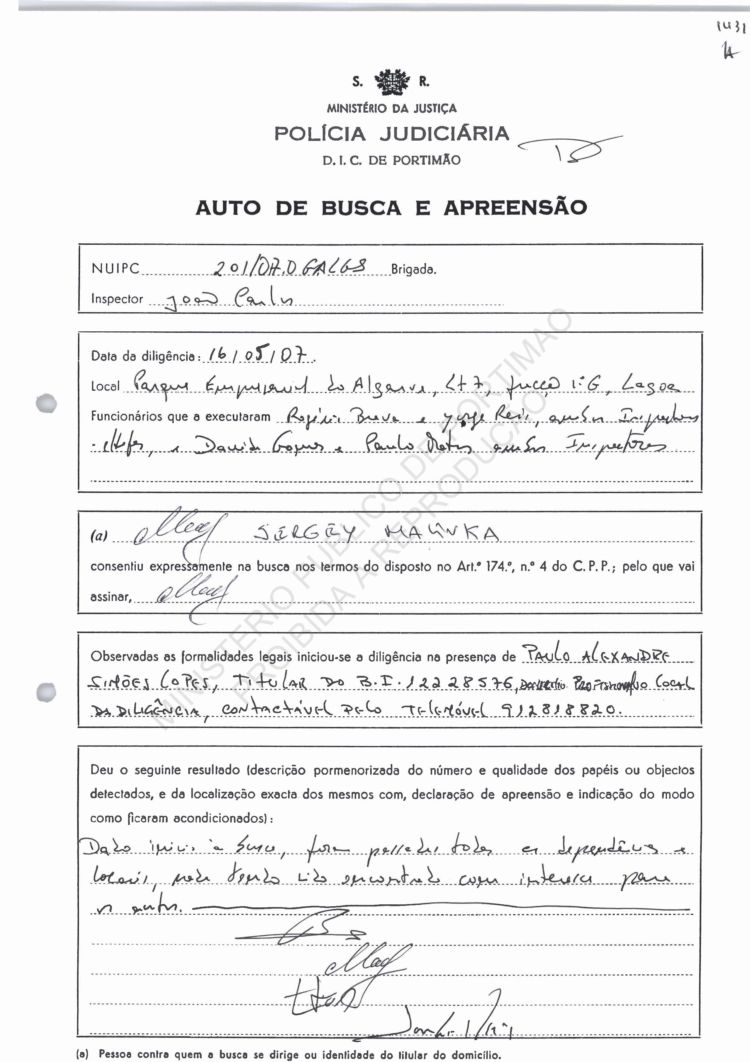 1431
S. R.
MINISTÉRIO DA JUSTIÇA
POLÍCIA JUDICIÁRIA
D. I. C. DE PORTIMÃO
AUTO DE BUSCA E APREENSÃO
NUIPC 201/07.0 GALGS Brigada.
Inspector João Carlos
Data da diligência: 16/05/07.
Local Parque Empresarial do Algarve, Lt 7, fracção 1.º G, Lagoa
Funcionários que a executaram Rogério Bravo e Jorge Reis, ambos Inspectores
-chefes, e David Gomes e Paulo ambos Inspectores
(a) SERGEY MALINKA
consentiu expressamente na busca nos termos do disposto no Art.º 174.º, n.º 4 do C. P. P.; pelo que vai
assinar,
Observadas as formalidades legais iniciou-se a diligência na presença de PAULO ALEXANDRE
SIMÕES LOPES, TITULAR DO B.I. 12228576, LOCAL
DA DILIGÊNCIA, CONTACTÁVEL PELO TELEMÓVEL 912818820.
Deu o seguinte resultado (descrição pormenorizada do número e qualidade dos papéis ou objectos
detectados, e da localização exacta dos mesmos com, declaração de apreensão e indicação do modo
como ficaram acondicionados):
Dado início à busca, foram todas as dependências e
locais, nada tendo sido encontrado com interesse para
os autos.
(a) Pessoa contra quem a busca se dirige ou identidade do titular do domicílio.
MINISTÉRIO PÚBLICO DE PORTIMÃO
PROIBIDA A REPRODUÇÃO